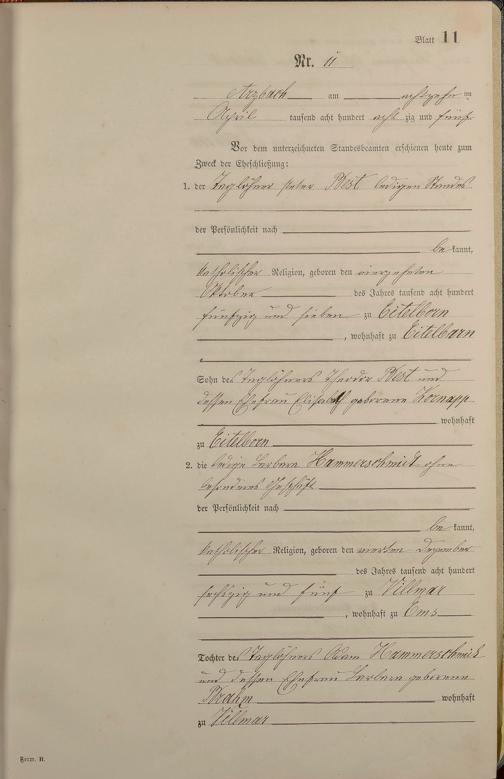 Blatt 11
Nr. 11
Arzbach am achtzehn ten
April tausend acht hundert acht zig und fünf
Vor dem unterzeichneten Standesbeamten erschienen heute zum
Zweck der Eheschließung:
1. der Taglöhner Peter Best ledigen Standes
der Persönlichkeit nach
be kannt,
katholischer Religion, geboren den vierzehnten
Oktober des Jahres tausend acht hundert
fünfzig und sieben zu Eitelborn
, wohnhaft zu Eitelborn
Sohn des Taglöhners Theodor Best und
dessen Ehefrau Elisabeth geborene
wohnhaft
zu Eitelborn
2. die ledige Barbara Hammerschmidt ohne
besonderes Geschäft
der Persönlichkeit nach
be kannt,
katholischer Religion, geboren den vierten Dezember
des Jahres tausend acht hundert
sechszig und fünf zu Villmar
, wohnhaft zu Ems
Tochter des Taglöhners Adam Hammerschmidt
und dessen Ehefrau Barbara geborene
wohnhaft
zu Villmar
Form. B.